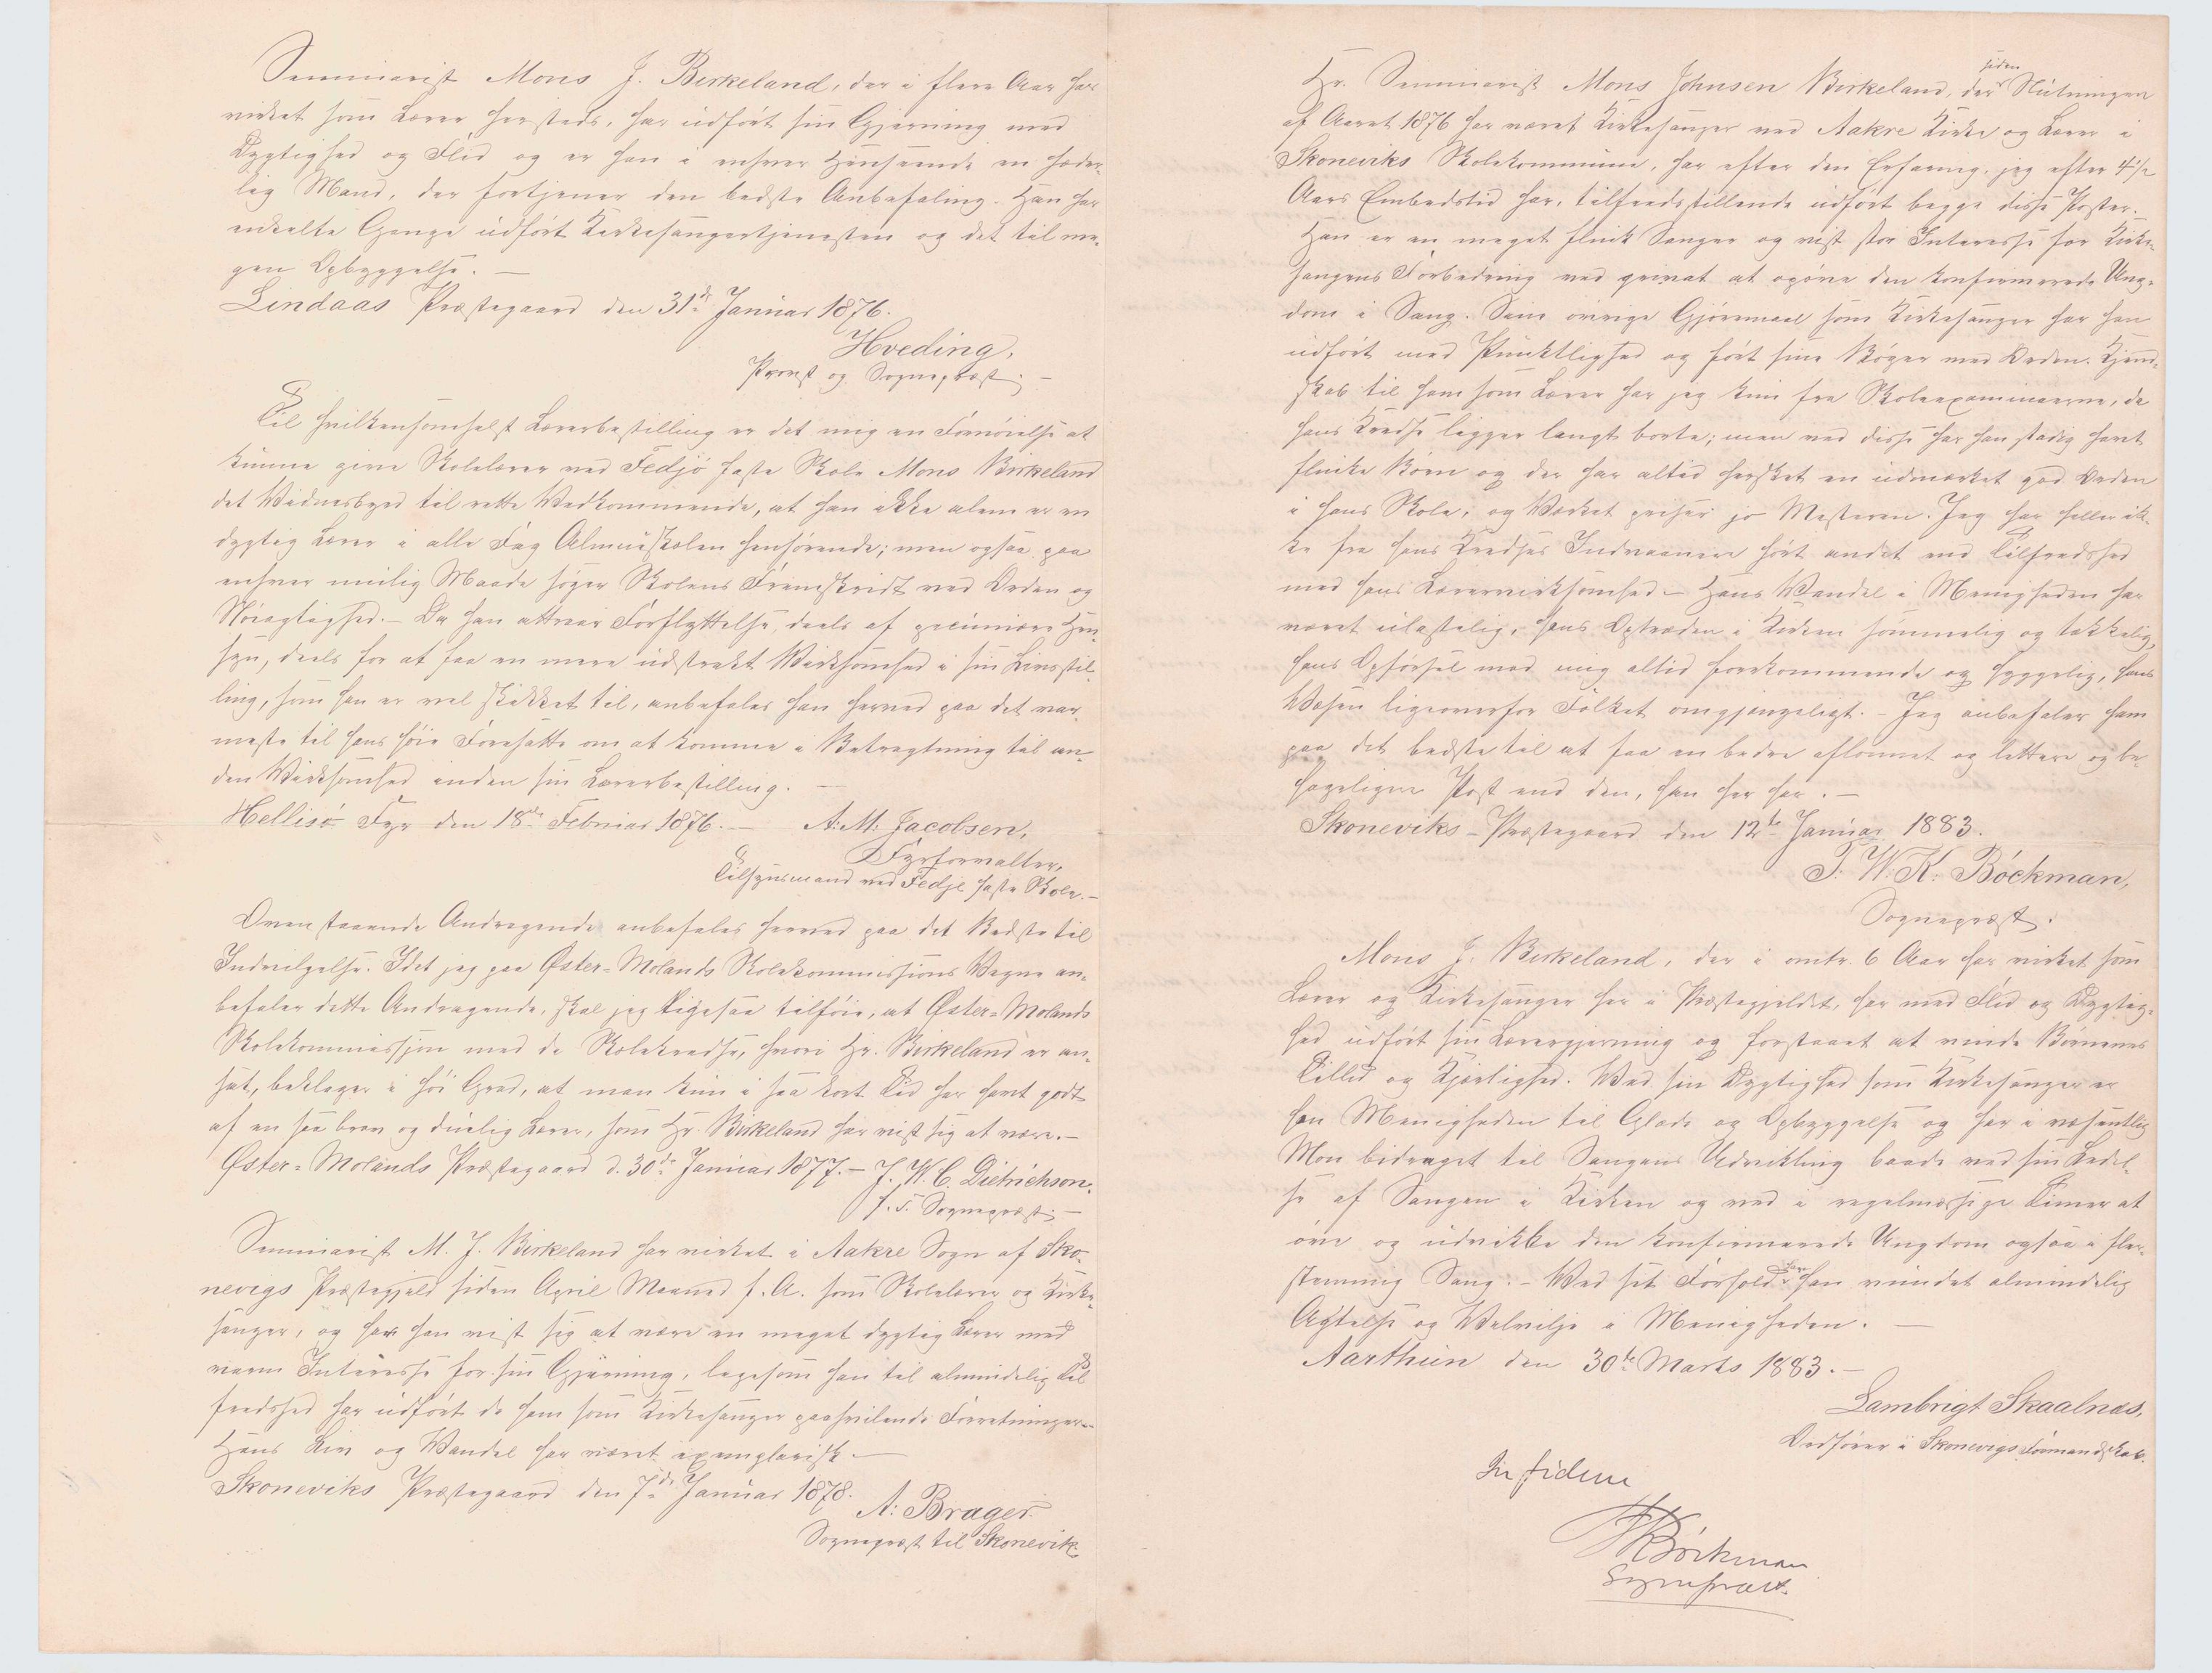 Seminarist Mons J. Birkeland, der i flere Aar har
virket som Lærer hersteds, har udført sin Gjerning med
Dygtighed og Flid og er han i enhver Henseende en hæder-
lig Mand, der fortjener den bedste Anbefaling. Han har
enkelte Gange udført Kirkesangertjenesten og det til me-
gen Opbyggelse. —
Lindaas Præstegaard den 31te Januar 1876.
Hveding,
Provst og Sognepræst. —
Til hvilkensomhelst Lærerbestilling er det mig en Fornøielse at
kunne give Skolelærer ved Fedjø faste Skole Mons Birkeland
det Vidnesbyrd til rette Vedkommende, at han ikke alene er en
dygtig Lærer i alle Fag Almueskolen henhørende; men ogsaa paa
enhver mulig Maade søger Skolens Fremskridt ved Orden og
Nøiagtighed. — Da han attraar Forflyttelse, deels af pecuniære Hen-
syn, deels for at faa en mere udstrakt Virksomhed i sin Livsstil-
ling, som han er vel skikket til, anbefales han herved paa det var-
meste til hans høie Foresatte om at komme i Betragtning til an-
den Virksomhed inden sin Lærerbestilling. —
Hellisø Fyr den 18de Februar 1876. — A. M. Jacobsen,
Fyrforvalter,
Tilsynsmand ved Fedje faste Skole. —
Ovenstaaende Andragende anbefales herved paa det Bedste til
Indvilgelse. Idet jeg paa Øster-Molands Skolekommissions Vegne an-
befaler dette Andragende, skal jeg ligesaa tilføie, at Øster-Molands
Skolekommission med de Skolekredse, hvori Hr. Birkeland er an-
sat, beklager i høi Grad, at man kun i saa kort Tid har havt godt
af en saa brav og duelig Lærer, som Hr. Birkeland har vist sig at være. —
Øster-Molands Præstegaard d. 30te Januar 1877. — J. W. C. Dietrichson.
f. T. Sognepræst. —
Seminarist M. J. Birkeland har virket i Aakre Sogn af Sko-
nevigs Præstegjeld siden April Maaned f. A. som Skolelærer og Kirke-
sanger, og har han vist sig at være en meget dygtig Lærer med
varm Interesse for sin Gjerning, ligesom han til almindelig Til-
fredshed har udført de ham som Kirkesanger paahvilende Forretninger. —
Hans Liv og Vandel har været exemplarisk. —
Skoneviks Præstegaard den 7de Januar 1878.
A. Brager.
Sognepræst til Skonevik.
Hr. Seminarist Mons Johnsen Birkeland, der siden Slutningen
af Aaret 1876 har været Kirkesanger ved Aakre Kirke og Lærer i
Skoneviks Skolekommune, har efter den Erfaring, jeg efter 4½
Aars Embedstid har, tilfredsstillende udført begge disse Poster.
Han er en meget flink Sanger og vist stor Interesse for Kirke-
sangens Forbedring ved privat at opøve den konfirmerede Ung-
dom i Sang. Sine øvrige Gjøremaal som Kirkesanger har han
udført med Punktlighed og ført sine Bøger med Orden. Kjend-
skab til ham som Lærer har jeg kun fra Skoleexaminerne, da
hans Kredse ligger langt borte; men ved disse har han stadig havt
flinke Børn og der har altid hersket en udmærket god Orden
i hans Skole; og Værket priser jo Mesteren. Jeg har heller ik-
ke fra hans Kredses Indvaanere hørt andet end Tilfredshed
med hans Lærervirksomhed. — Hans Vandel i Menigheden har
været ulastelig, hans Optræden i Kirken sømmelig og tækkelig,
hans Opførsel mod mig altid forekommende og hyggelig, hans
Væsen ligeoverfor Folket omgjængeligt. — Jeg anbefaler ham
paa det bedste til at faa en bedre aflønnet og lettere og be-
hageligere Post end den, han her har. —
Skoneviks-Præstegaard den 12te Januar 1883.
T. W. K. Bøckman,
Sognepræst.
Mons J. Birkeland, der i omtr. 6 Aar har virket som
Lærer og Kirkesanger her i Præstegjeldet, har med Flid og Dygtig-
hed udført sin Lærergjerning og forstaaet at vinde Børnenes
Tillid og Kjærlighed. Ved sin Dygtighed som Kirkesanger er
han Menigheden til Glæde og Opbyggelse og har i væsentlig
Mon bidraget til Sangens Udvikling baade ved sin Ledel-
se af Sangen i Kirken og ved i regelmæssige Timer at
øve og udvikle den konfirmerede Ungdom ogsaa i fler-
stemmig Sang. — Ved sit Forhold har han vundet almindelig
Agtelse og Velvilje i Menigheden. —
Aarthun den 30te Marts 1883. —
Lambrigt Skaalnæs,
Ordfører i Skonevigs Formandskab.
In fidem
TWKBöckman
Sognepræst.